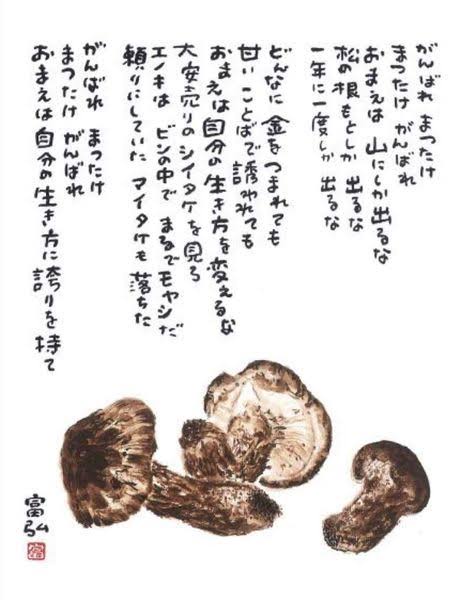 がんばれ まつたけ
まつたけ がんばれ
おまえは 山にしか出るな
松の根もとしか 出るな
一年に一度しか 出るな
どんなに 金をつまれても
甘い ことばで 誘われても
おまえは自分の 生き方を変えるな
大安売りの シイタケを 見ろ
エノキは ビンの中で まるで モヤシだ
頼りにしていた マイタケも 落ちた
がんばれ まつたけ
まつたけ がんばれ
おまえは 自分の 生き方に 誇りを 持て
富弘
富